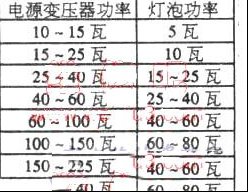 电源变压器功率 灯泡功率
10~15瓦 5瓦
15~25瓦 10瓦
25~40瓦 15~25瓦
40~60瓦 25~40瓦
60~100瓦 40~60瓦
100~150瓦 60~80瓦
150~225瓦 40~60瓦
40瓦 60 80瓦